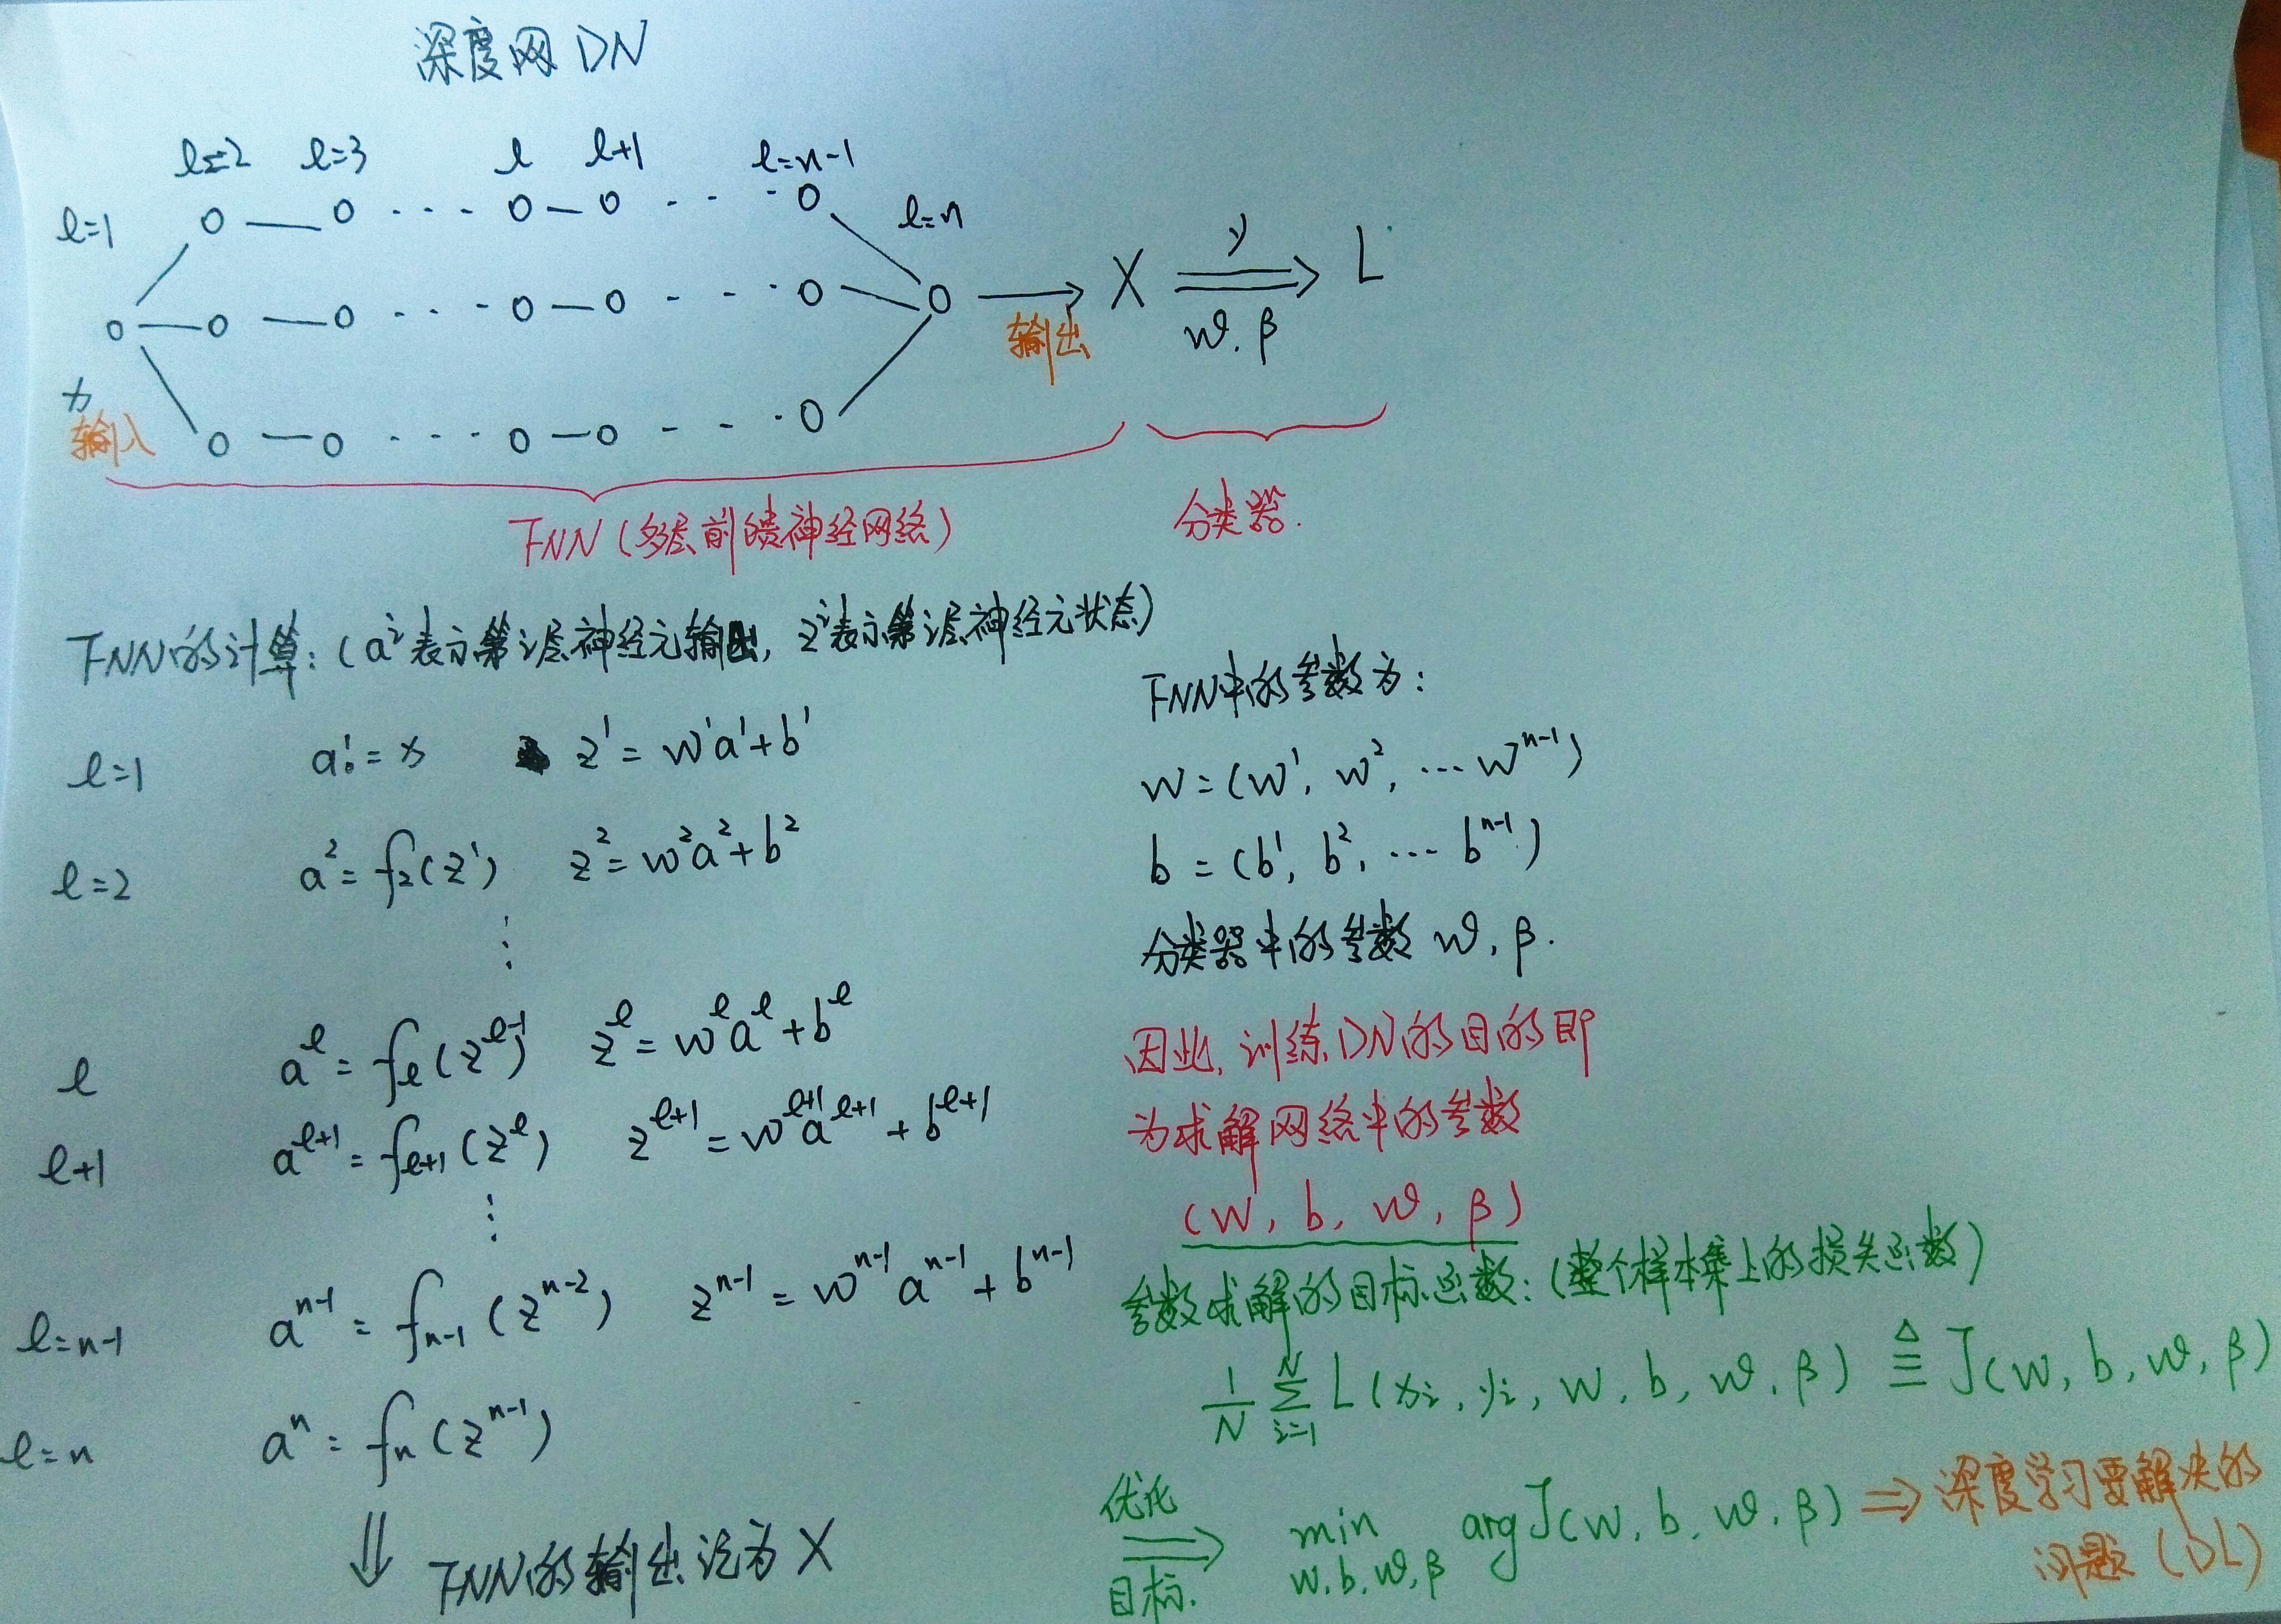 深度网 DN
l=2 l=3 l l+1 l=n-1
l=1 l=n
X y L
输出 w, β
x
输入
FNN (多层前馈神经网络) 分类器.
FNN的计算: (aⁱ表示第i层神经元输出, zⁱ表示第i层神经元状态)
l=1 a¹=x z¹=w¹a¹+b¹
l=2 a²=f₂(z¹) z²=w²a²+b²
⋮
l a^l=f_l(z^{l-1}) z^l=w^l a^l+b^l
l+1 a^{l+1}=f_{l+1}(z^l) z^{l+1}=w^{l+1}a^{l+1}+b^{l+1}
⋮
l=n-1 a^{n-1}=f_{n-1}(z^{n-2}) z^{n-1}=w^{n-1}a^{n-1}+b^{n-1}
l=n aⁿ=f_n(z^{n-1})
⇓ FNN的输出记为 X
FNN中的参数为:
W=(w¹, w², ⋯ w^{n-1})
b=(b¹, b², ⋯ b^{n-1})
分类器中的参数 w, β.
因此, 训练DN的目的即
为求解网络中的参数
(W, b, w, β)
参数求解的目标函数: (整个样本集上的损失函数)
1/N Σ_{i=1}^{N} L(xᵢ, yᵢ, W, b, w, β) ≜ J(W, b, w, β)
优化
目标. ⇒ min_{W,b,w,β} arg J(W, b, w, β) ⇒ 深度学习要解决的
问题 (DL)